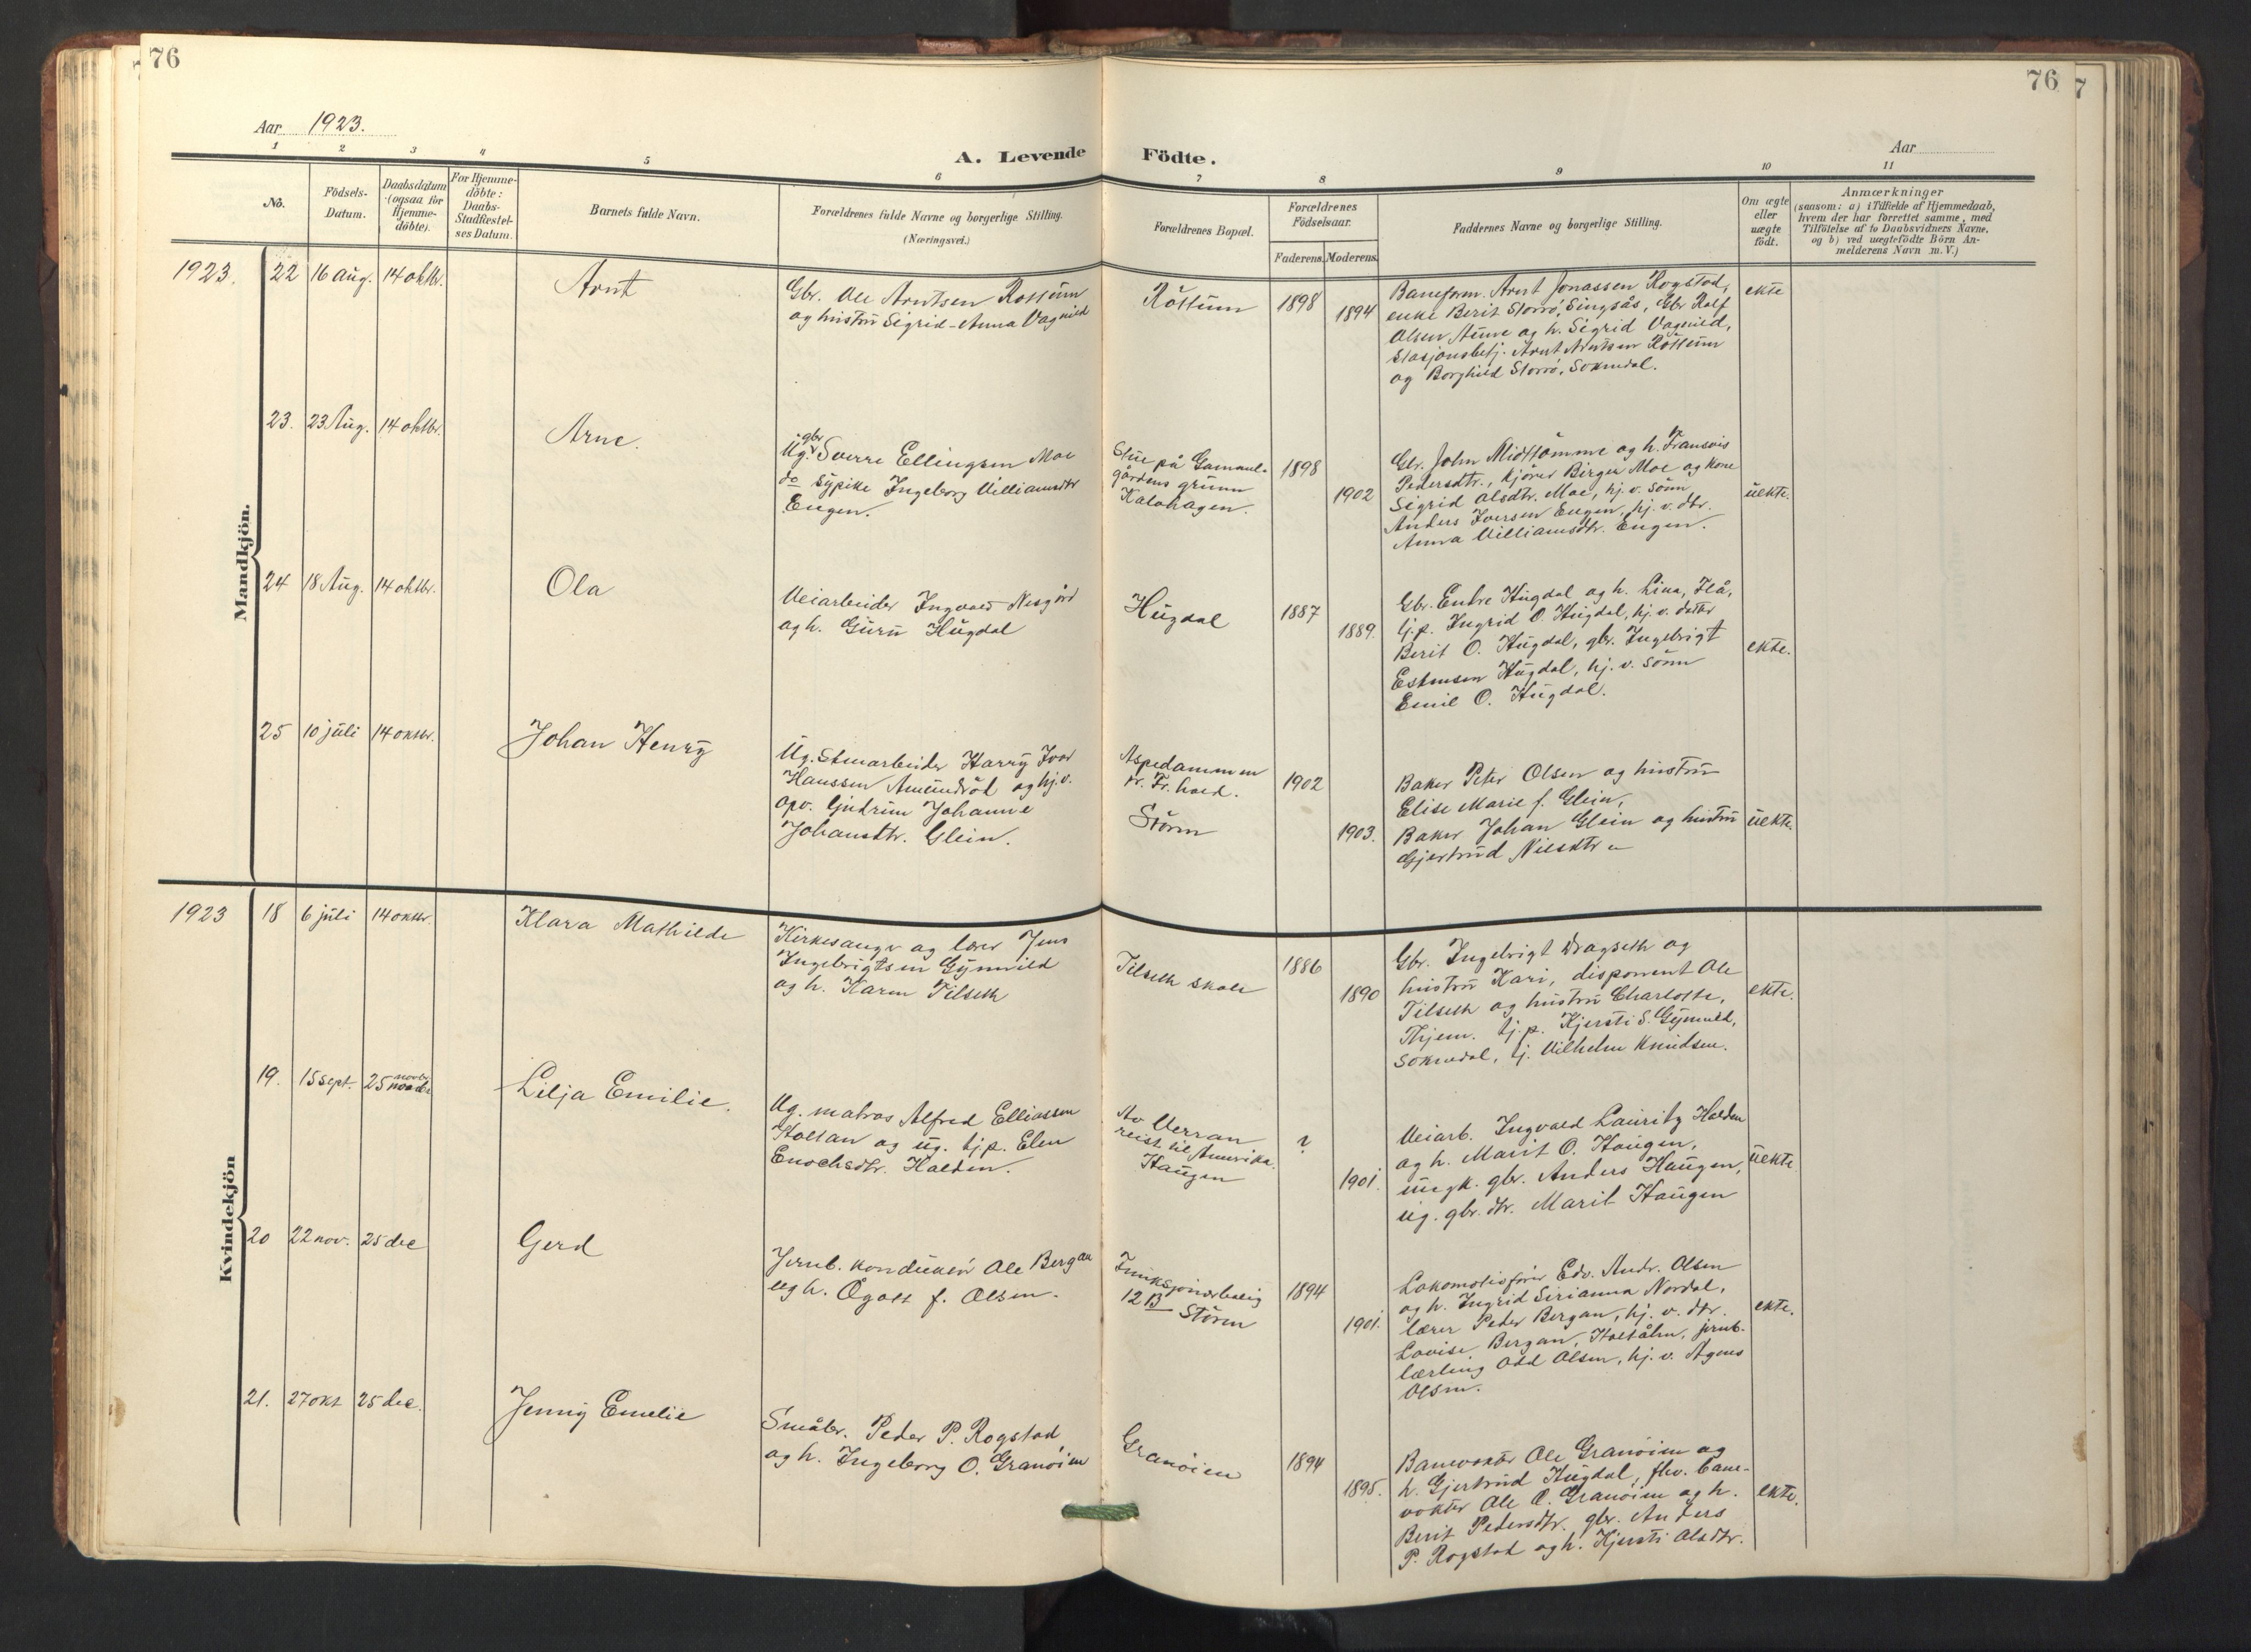 76
76
7
Aar 1923.
Aar
A. Levende Födte.
1 2 3 4 5 6 7 8 9 10 11
No.
Födsels-
Datum.
Daabsdatum
(ogsaa for
Hjemme-
döbte).
For Hjemme-
döbte:
Daabs-
Stadfæstel-
ses Datum.
Barnets fulde Navn.
Forældrenes fulde Navne og borgerlige Stilling.
(Næringsvei.)
Forældrenes Bopæl.
Forældrenes
Födselsaar.
Faderens. Moderens.
Faddernes Navne og borgerlige Stilling.
Om ægte
eller
uægte
födt.
Anmærkninger
(saasom: a) i Tilfælde af Hjemmedaab,
hvem der har forrettet samme, med
Tilföielse af to Daabsvidners Navne,
og b) ved uægtefödte Börn An-
melderens Navn m.V.)
Mandkjön.
1923. 22 16 aug. 14 oktbr.
Arnt
Gbr. Ole Arntsen Rostum
og hustru Sigrid-Anna Vagnild
Röttum
1898
1894
Baneform. Arnt Jonassen Rogstad,
enke Berit Storrö, Singsås, Gbr Rolf
Olsen Aune og h. Sigrid Vagnild,
Stasjonsbetj. Arnt Arntsen Röttum
og Borghild Storrö, Soknedal.
ekte
23. 23 Aug. 14 oktbr.
Arne.
gbr
Ug. Sverre Ellingsen Moe
do sypike Ingeborg Villiamsdtr
Engen.
Stue på Gammel-
gårdens grunn
Kalvhagen.
1898
1902
Gbr. John Midttömme og h. Fransois
Pedersdtr., kjörer Birger Moe og kone
Sigrid Olsdtr. Moe, hj. v. sönn
Anders Iversen Engen, hj. v. dtr.
Anna Villiamsdtr. Engen.
uekte.
24 18 Aug. 14 oktbr.
Ola
Veiarbeider Ingvald Nesgård
og h. Guru Hugdal
Hugdal
1887
1889.
Gbr. Endre Hugdal og h. Lina, Flå,
tj.p. Ingrid O. Hugdal, hj. v. datter
Berit O. Hugdal, gbr. Ingebrigt
Estensen Hugdal, hj. v. sönn
Emil O. Hugdal.
ekte.
25 10 juli 14 oktbr.
Johan Henry
Ug. Stenarbeider Harry Ivar
Hanssen Amundröd og hj.v.
opv. Gudrun Johanne
Johansdtr. Glein.
Aspedammen
pr. Fr. hald.
Stören
1902
1903.
Baker Peter Olsen og hustru
Elise Marie f. Glein,
Baker Johan Glein og hustru
Gjertrud Nilsdtr "
uekte.
Kvindekjön
1923 18 6 juli 14 oktbr.
Klara Mathilde
Kirkesanger og lærer Jens
Ingebrigtsen Gynnild
og h. Karen Tilseth
Tilseth skole
1886
1890
Gbr. Ingebrigt Dragseth og
hustru Kari, disponent Ole
Tilseth og hustru Charlotte,
Thjem. tj.p. Kjersti S. Gynnild,
Soknedal, tj. Vilhelm Knudsen.
ekte.
19. 15 sept. 25 novbr.
Lilja Emilie.
Ug. matros Alfred Elliassen
Holtan og ug. tj.p. Elen
Enochsdtr. Halden.
Av Verran
reist til Amerika.
Haugen
?
1901.
Veiarb. Ingvald Lauritz Halden
og h. Marit O. Haugen,
ungk. gbr. Anders Haugen,
ug. gbr. dtr. Marit Haugen
uekte.
20 22 nov. 25 dec
Gerd
Jernb. konduktör Ole Bergan
og h. Ågott f. Olsen.
Funksjonærbolig
12 B Stören
1894
1901.
Lokomotivförer Edv. Andr. Olsen
og h. Ingrid Sirianna Nordal,
lærer Peder Bergan, hj. v. dtr.
Lovise Bergan, Holtålen, jernb.
lærling Odd Olsen, hj. v. Agnes
Olsen.
ekte.
21. 27 okt 25 dec.
Jenny Emelie
Småbr. Peder P. Rogstad
og h. Ingeborg O. Granöien
Granöien
1894
1895.
Banevokter Ole Granöien og
h. Gjertrud Hugdal, fhv. bane-
vokter Ole O. Granöien og h.
Berit Pedersdtr. gbr. Anders
P. Rogstad og h. Kjersti Olsdtr.
ekte.